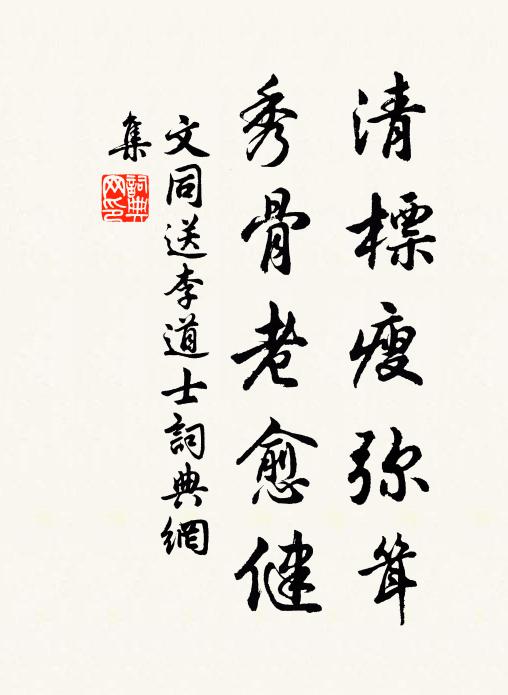 清標瘦弥耸
秀骨老愈健
文同送李道士詞典網
集
詞典
网印